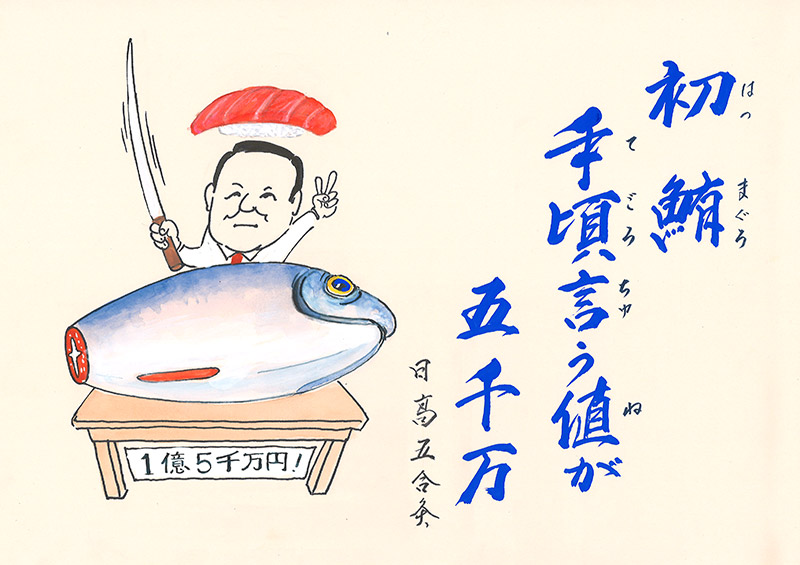 はっ まぐろ
初鮪
て ごろ ちゅ ね
手頃言う値が
五千万
日高五合
1億5千万円!